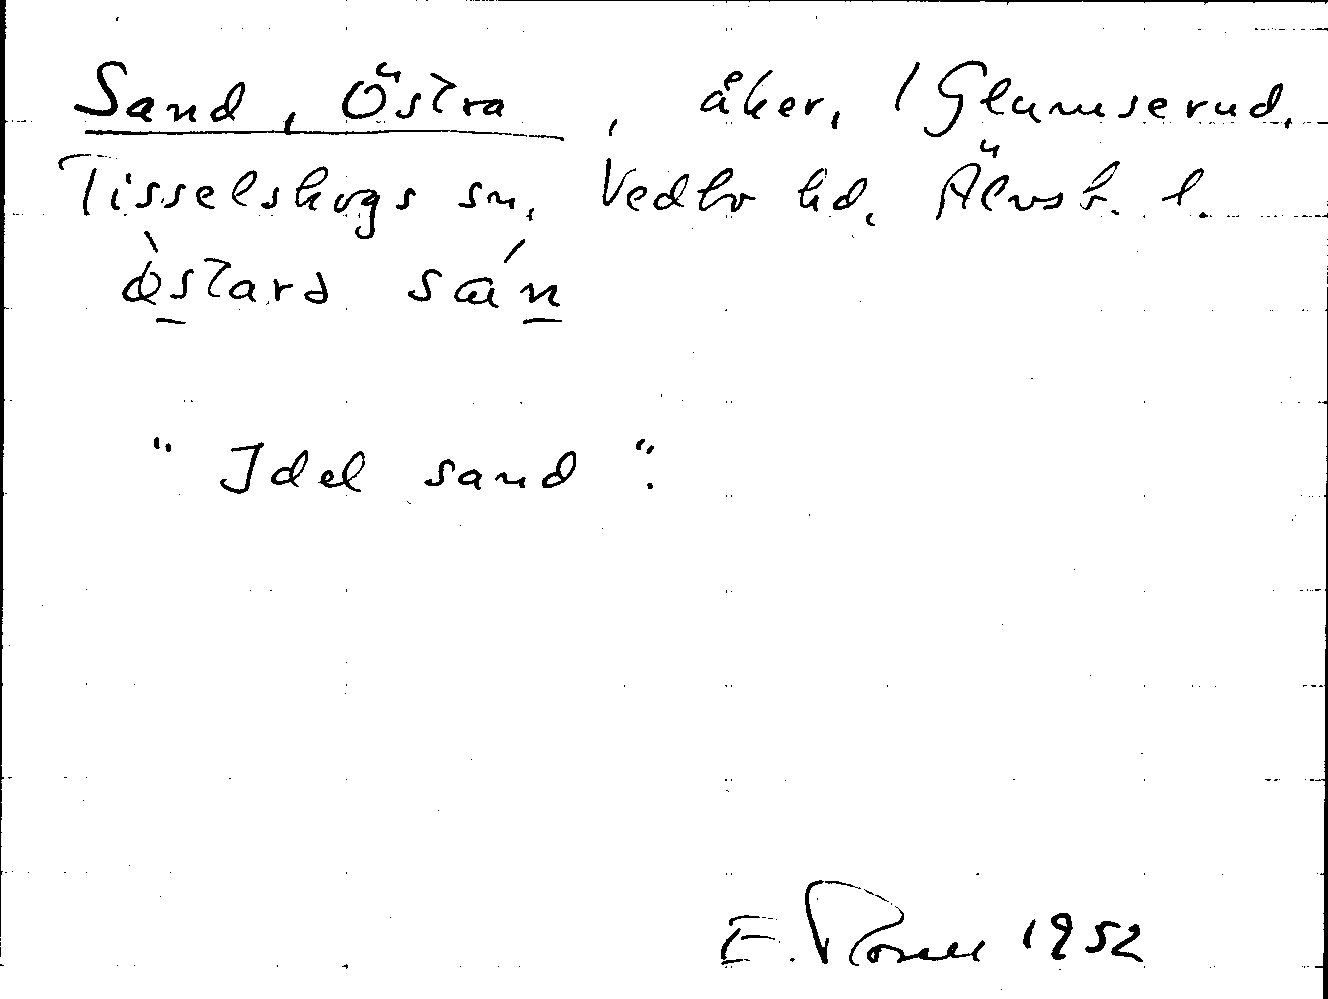 Sand, Östra, åker, 1 Glumserud.
Tisselskogs sn, Vedbo hd. Älvsb. l.
östarə sán
"Idel sand".
E. Rosell 1952